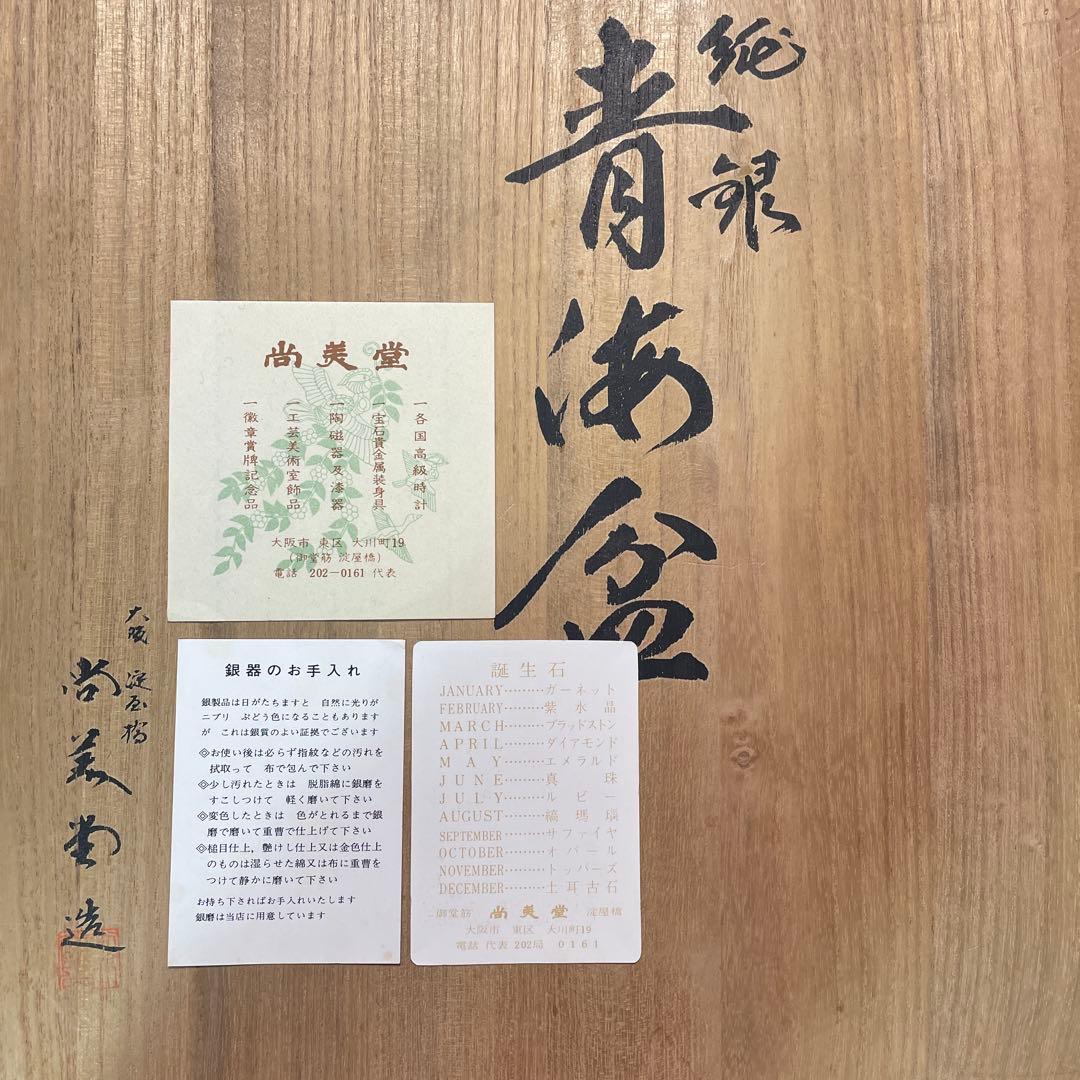 純銀
青海盆
尚美堂
一各国高級時計
一宝石貴金属装身具
一陶磁器及漆器
一工芸美術室飾品
一徽章賞牌記念品
大阪市 東区 大川町19
(御堂筋 淀屋橋)
電話 202-0161 代表
大阪 淀屋橋
尚美堂造
銀器のお手入れ
銀製品は日がたちますと 自然に光りが
ニブリ ぶどう色になることもあります
が これは銀質のよい証拠でございます
◎お使い後は必らず指紋などの汚れを
拭取って 布で包んで下さい
◎少し汚れたときは 脱脂綿に銀磨を
すこしつけて 軽く磨いて下さい
◎変色したときは 色がとれるまで銀
磨で磨いて重曹で仕上げて下さい
◎槌目仕上,艶けし仕上又は金色仕上
のものは湿らせた綿又は布に重曹を
つけて静かに磨いて下さい
お持ち下さればお手入れいたします
銀磨は当店に用意しています
誕生石
JANUARY………ガーネット
FEBRUARY………紫水晶
MARCH………ブラッドストン
APRIL………ダイアモンド
MAY………エメラルド
JUNE………真珠
JULY………ルビー
AUGUST………縞瑪瑙
SEPTEMBER………サファイヤ
OCTOBER………オパール
NOVEMBER………トッパーズ
DECEMBER………土耳古石
御堂筋 尚美堂 淀屋橋
大阪市 東区 大川町19
電話 代表 202局 0161